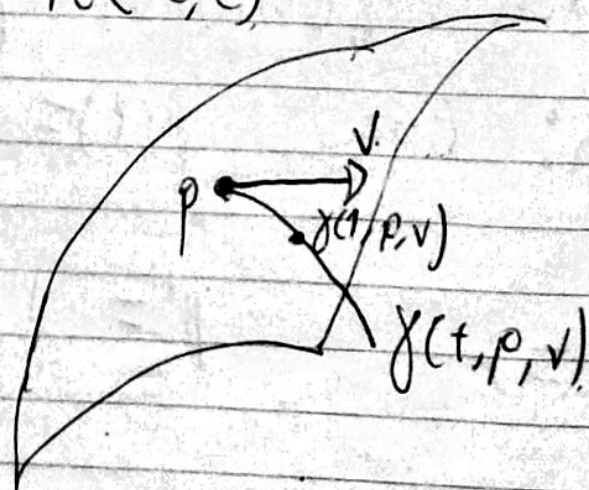 V.
p
γ(1, p, v)
γ(t, p, v).